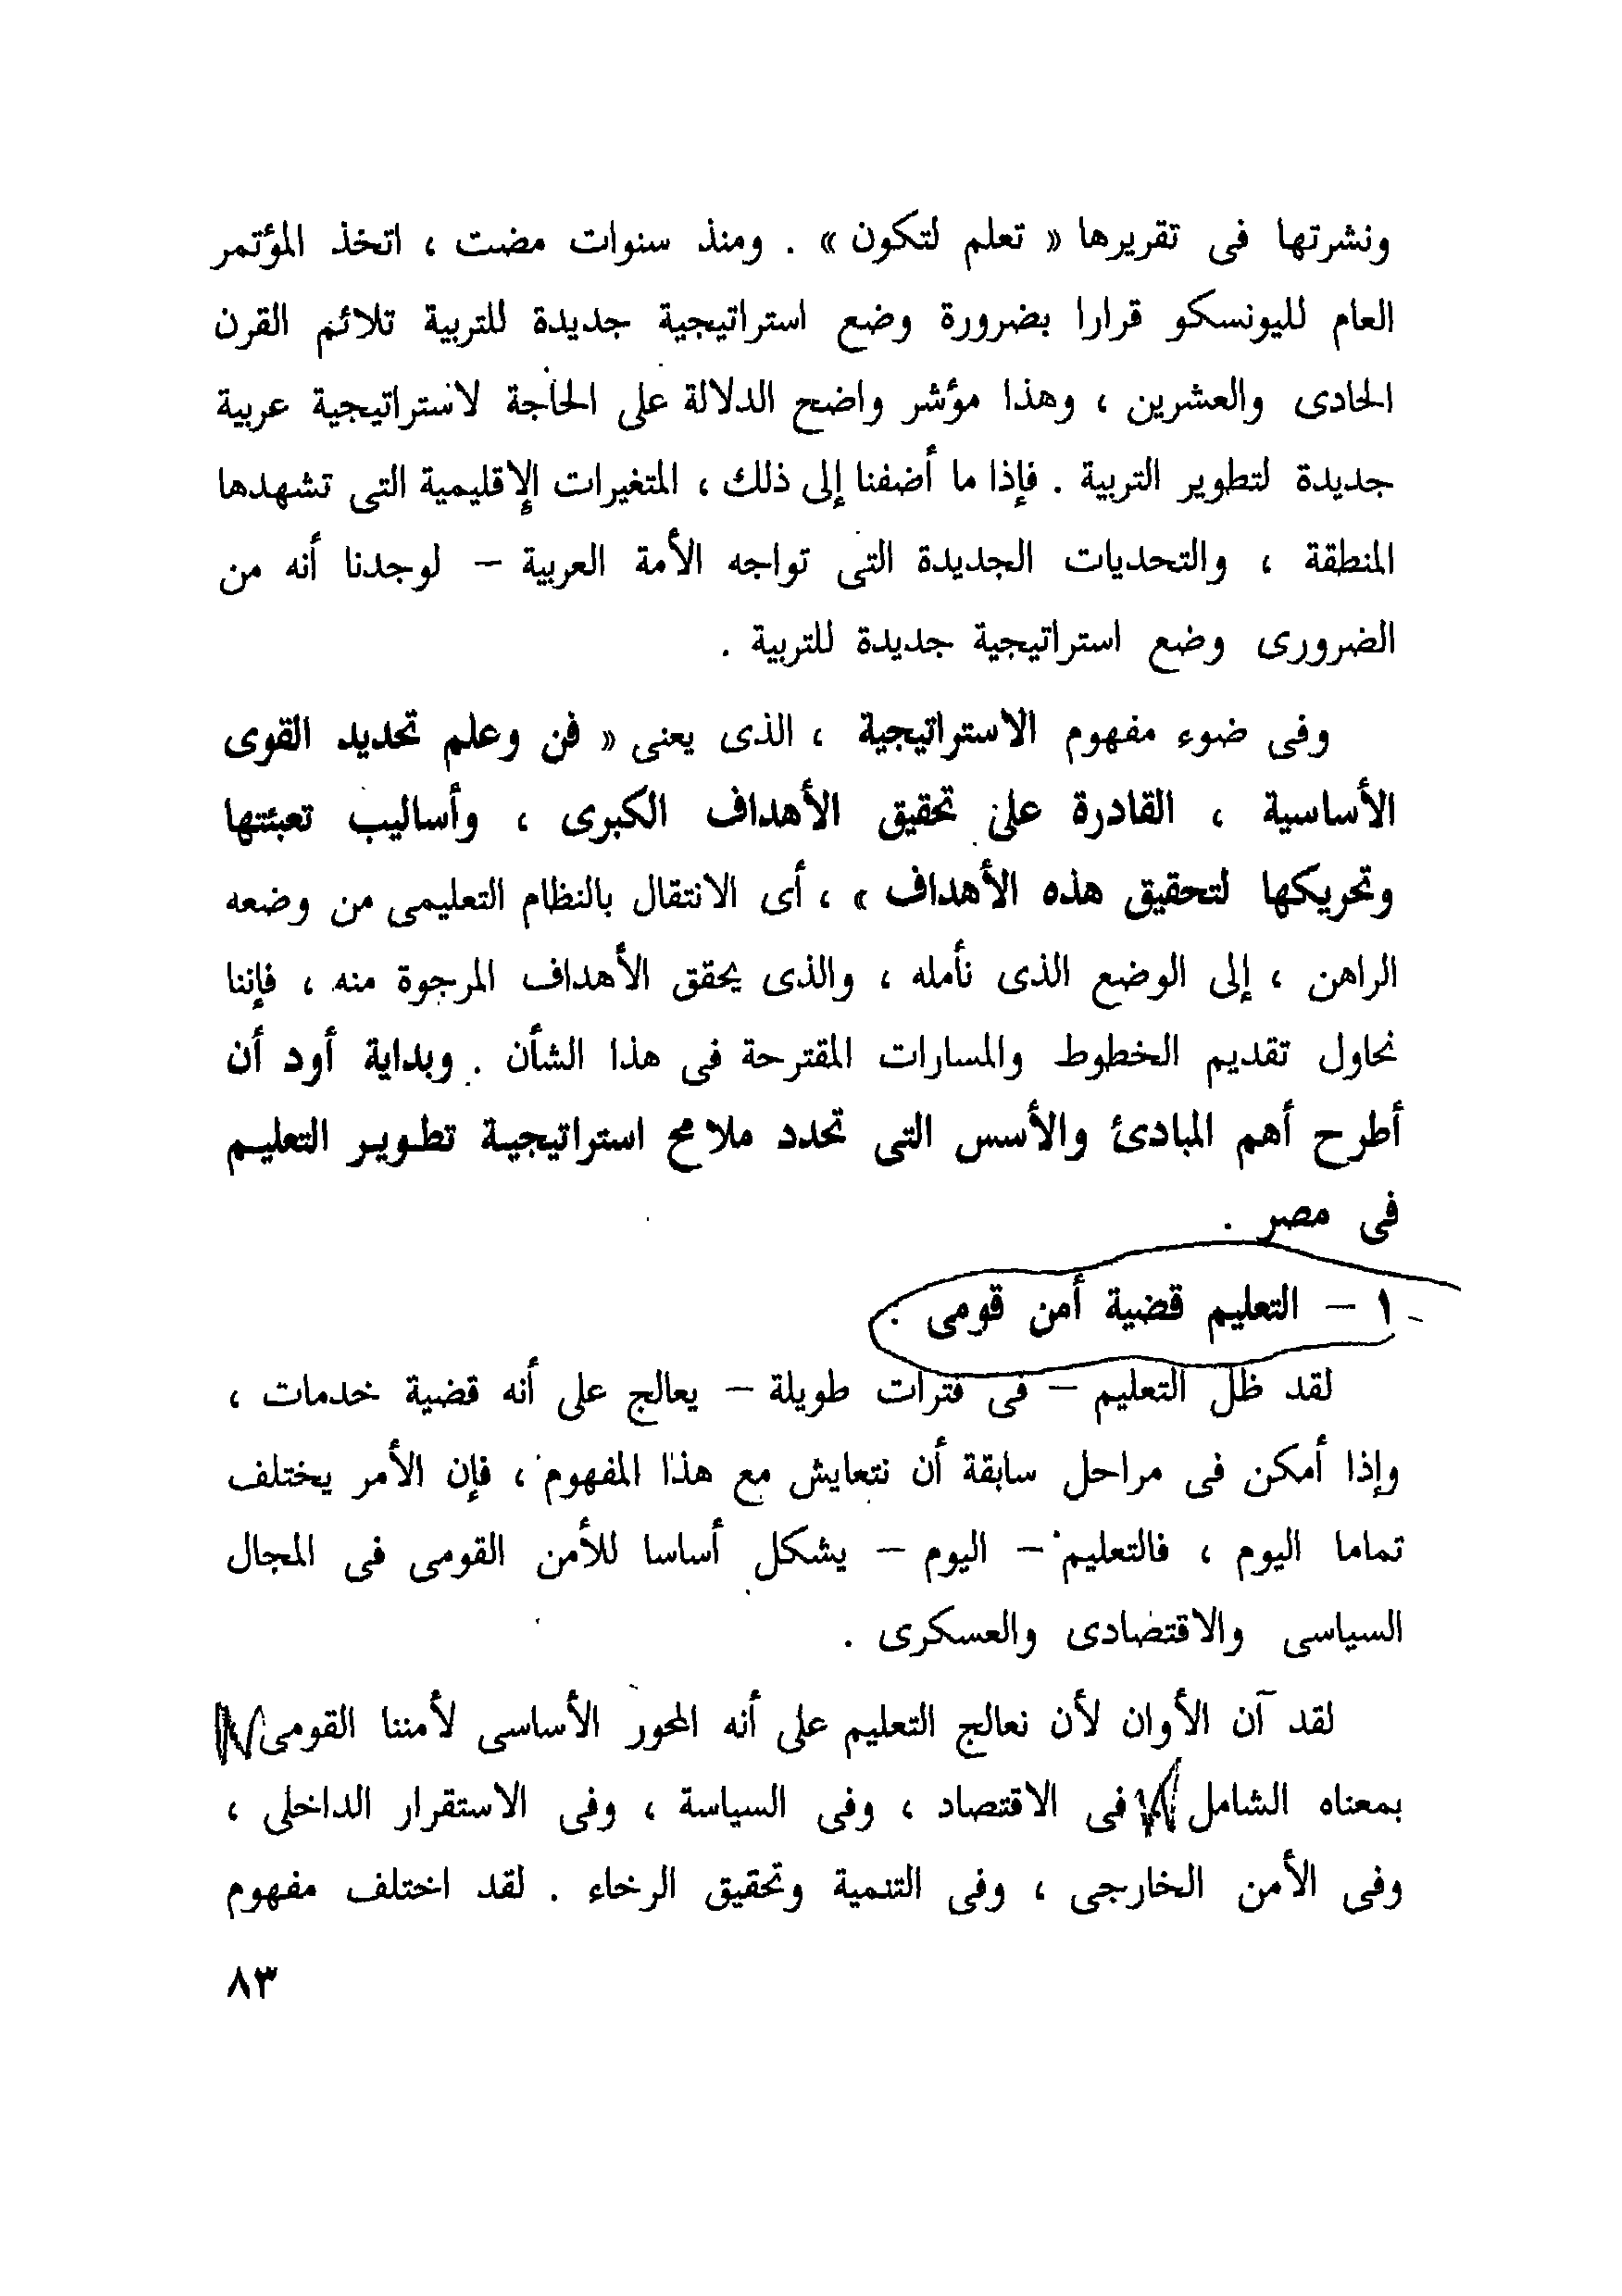 ونشرتها فى تقريرها « تعلم لتكون » . ومنذ سنوات مضت ، اتخذ المؤتمر
العام لليونسكو قرارا بضرورة وضع استراتيجية جديدة للتربية تلائم القرن
الحادى والعشرين ، وهذا مؤشر واضح الدلالة على الحاجة لاستراتيجية عربية
جديدة لتطوير التربية . فإذا ما أضفنا إلى ذلك ، المتغيرات الإقليمية التى تشهدها
المنطقة ، والتحديات الجديدة التى تواجه الأمة العربية – لوجدنا أنه من
الضرورى وضع استراتيجية جديدة للتربية .
وفى ضوء مفهوم الاستراتيجية ، الذى يعنى « فن وعلم تحديد القوى
الأساسية ، القادرة على تحقيق الأهداف الكبرى ، وأساليب تعبئتها
وتحريكها لتحقيق هذه الأهداف » ، أى الانتقال بالنظام التعليمى من وضعه
الراهن ، إلى الوضع الذى نأمله ، والذى يحقق الأهداف المرجوة منه ، فإننا
نحاول تقديم الخطوط والمسارات المقترحة فى هذا الشأن . وبداية أود أن
أطرح أهم المبادئ والأسس التى تحدد ملامح استراتيجية تطوير التعليم
فى مصر .
١ – التعليم قضية أمن قومى .
لقد ظل التعليم – فى فترات طويلة – يعالج على أنه قضية خدمات ،
وإذا أمكن فى مراحل سابقة أن نتعايش مع هذا المفهوم ، فإن الأمر يختلف
تماما اليوم ، فالتعليم – اليوم – يشكل أساسا للأمن القومى فى المجال
السياسى والاقتصادى والعسكرى .
لقد آن الأوان لأن نعالج التعليم على أنه المحور الأساسى لأمننا القومى
بمعناه الشامل فى الاقتصاد ، وفى السياسة ، وفى الاستقرار الداخلى ،
وفى الأمن الخارجى ، وفى التنمية وتحقيق الرخاء . لقد اختلف مفهوم
٨٣